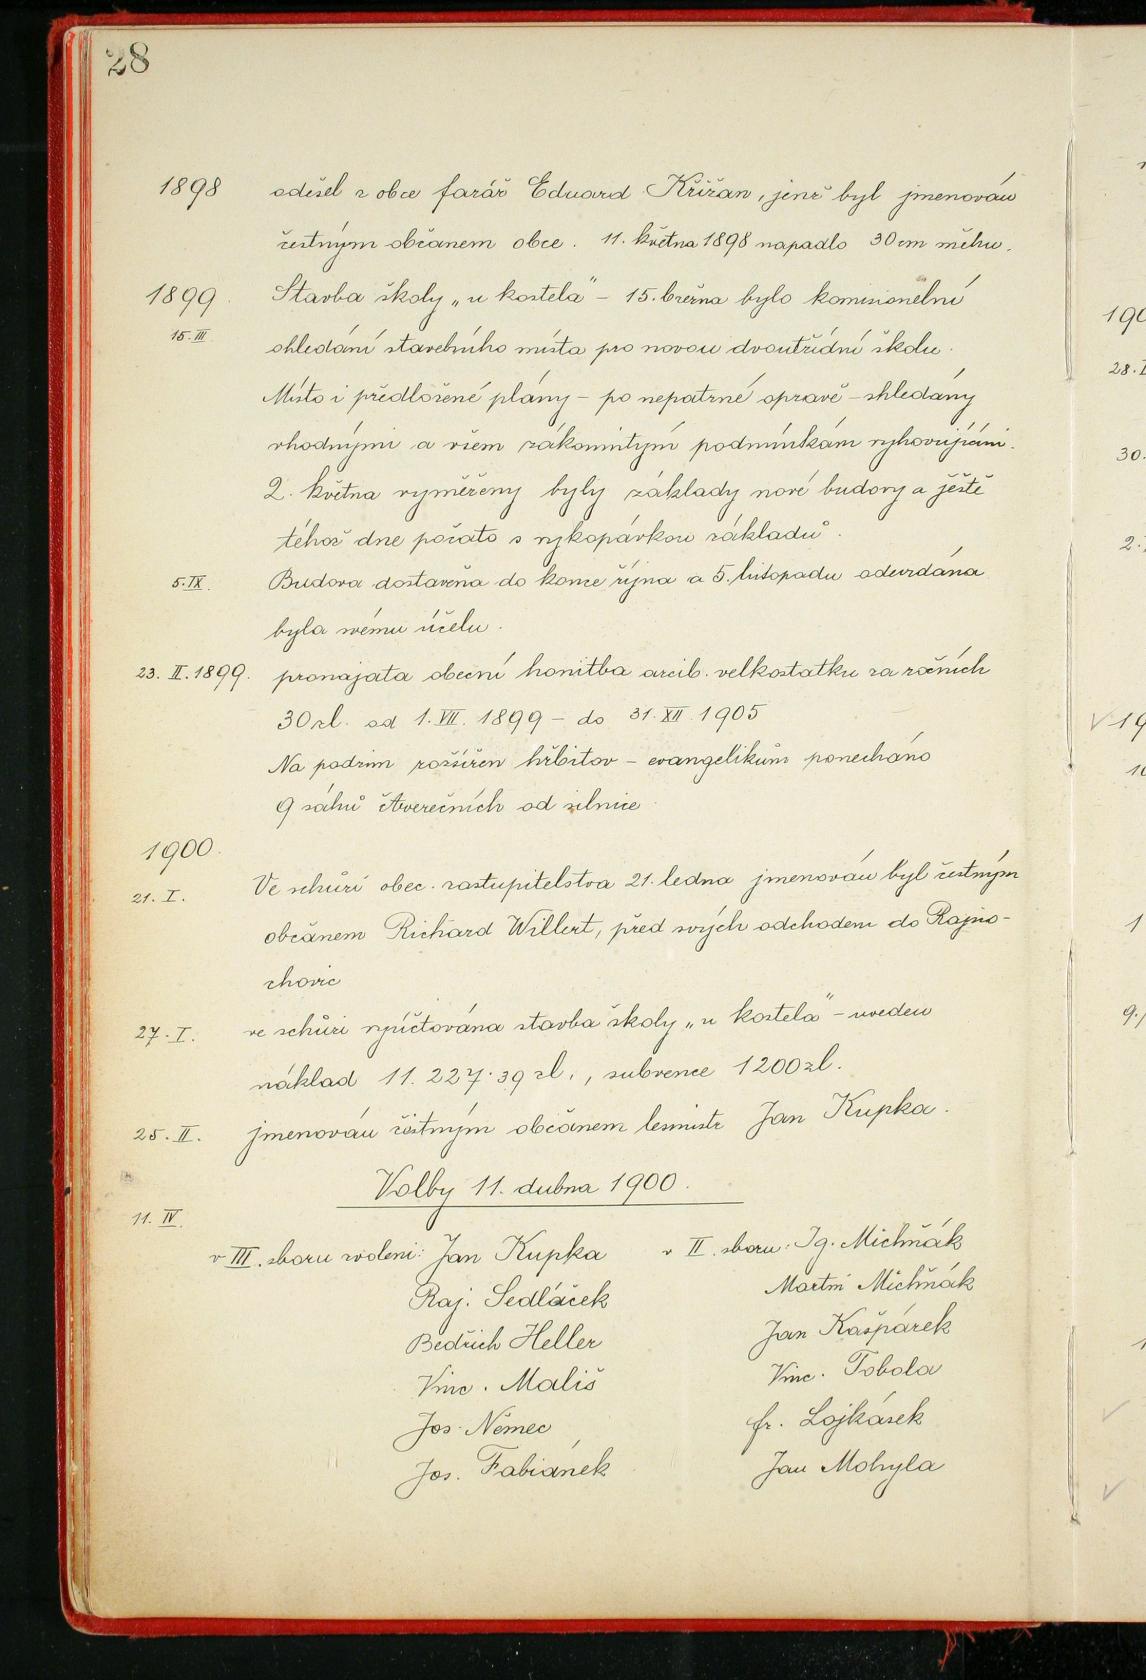 28
1898 odešel z obce farář Eduard Křižan, jenž byl jmenován
čestným občanem obce. 11. května 1898 napadlo 30 cm sněhu.
1899. Stavba školy „u kostela" – 15. března bylo komisionelní
15. III. ohledání stavebního místa pro novou dvoutřídní školu.
Místo i předložené plány – po nepatrné opravě – shledány
vhodnými a všem zákonnitým podmínkám vyhovujícími.
2. května vyměřeny byly základy nové budovy a ještě
téhož dne počato s vykopávkou základů.
5. IX. Budova dostavěna do konce října a 5. listopadu odevzdána
byla svému účelu.
23. II. 1899. pronajata obecní honitba arcib. velkostatku za ročních
30 zl. od 1. VII. 1899 – do 31. XII. 1905
Na podzim rozšířen hřbitov – evangelikům ponecháno
9 sáhů čtverečních od silnice
1900.
21. I. Ve schůzi obec. zastupitelstva 21. ledna jmenován byl čestným
občanem Richard Willert, před svých odchodem do Rajno-
chovic
27. I. ve schůzi vyúčtována stavba školy „u kostela" – uveden
náklad 11.227·39 zl., subvence 1200 zl.
25. II. jmenován čestným občanem lesmistr Jan Kupka.
Volby 11. dubna 1900.
11. IV.
v III. sboru zvoleni: Jan Kupka v II. sboru: Ig. Michňák
Raj. Sedláček Martin Michňák
Bedřich Heller Jan Kašpárek
Vinc. Mališ Vinc. Tobola
Jos. Němec fr. Lojkásek
Jos. Fabiánek Jan Mohyla